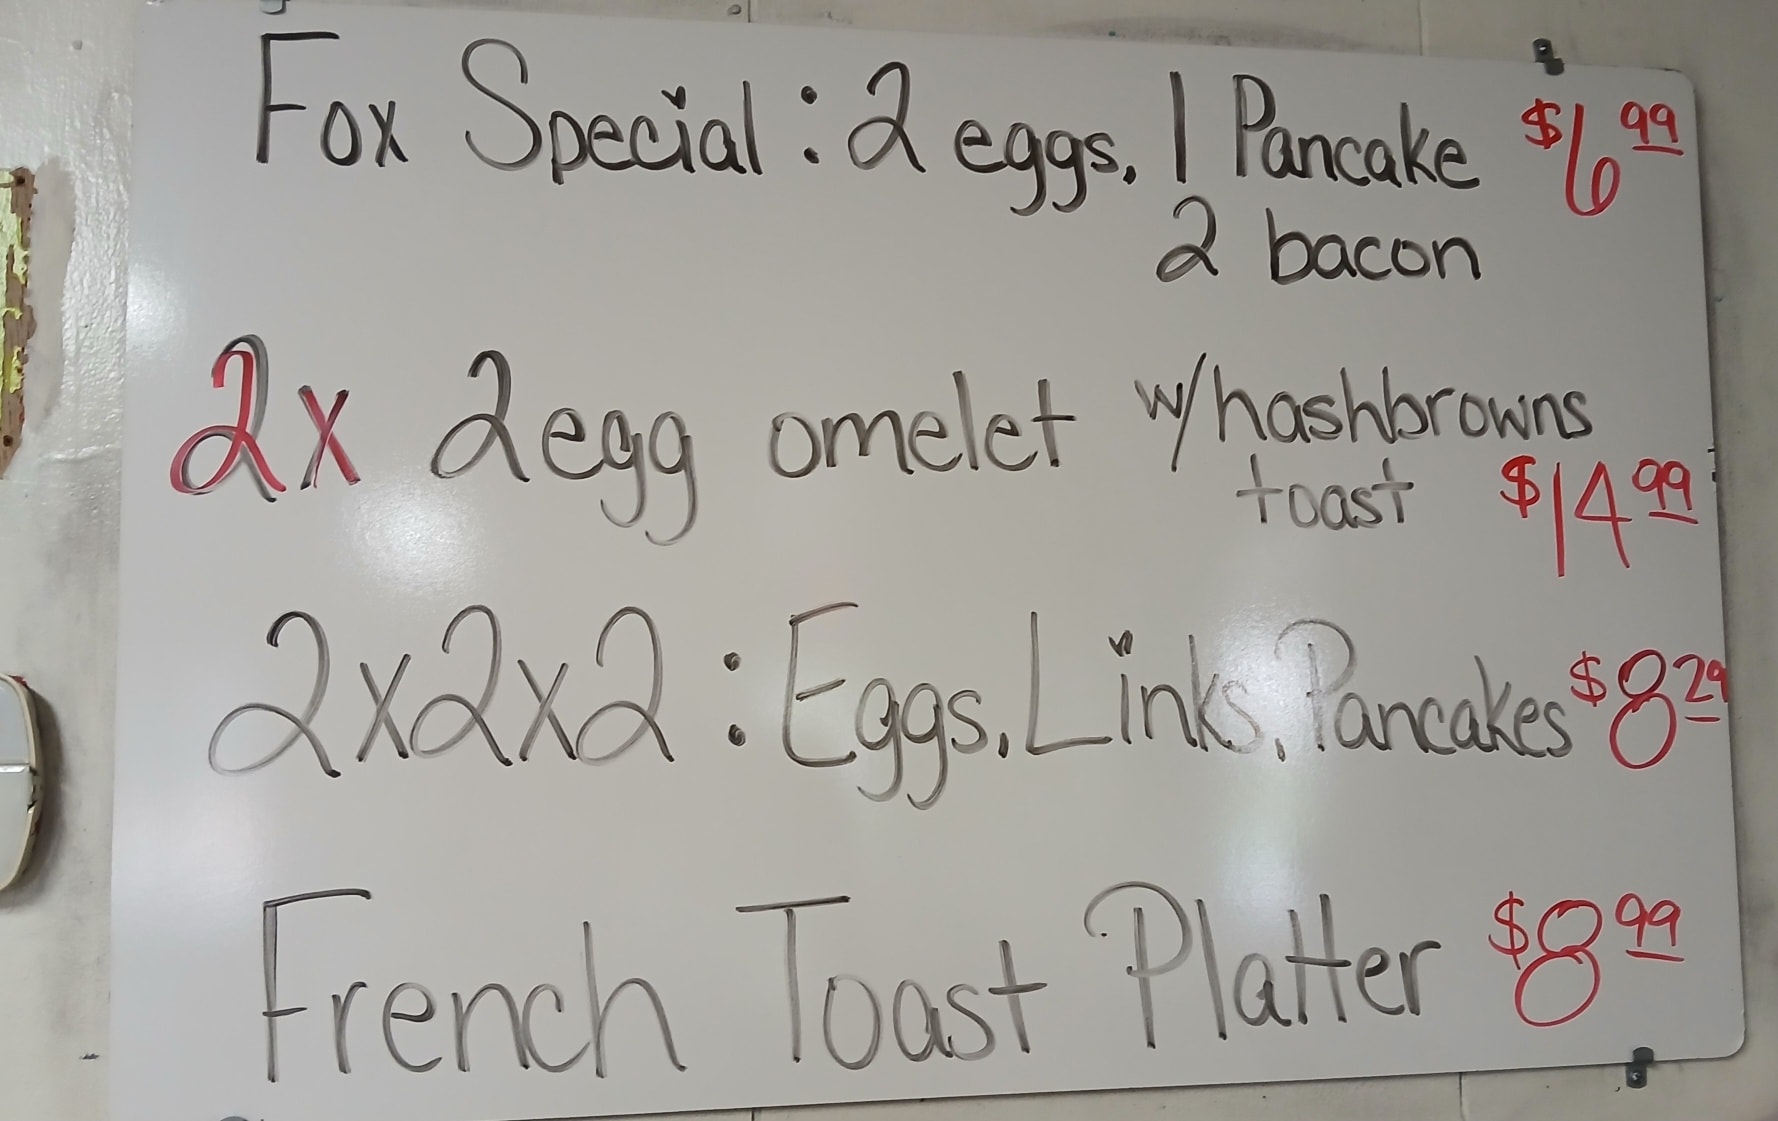 Fox Special: 2 eggs, 1 Pancake $6 99
2 bacon
2x 2egg omelet w/hashbrowns
toast $14 99
2x2x2: Eggs, Links, Pancakes $8 29
French Toast Platter $8 99